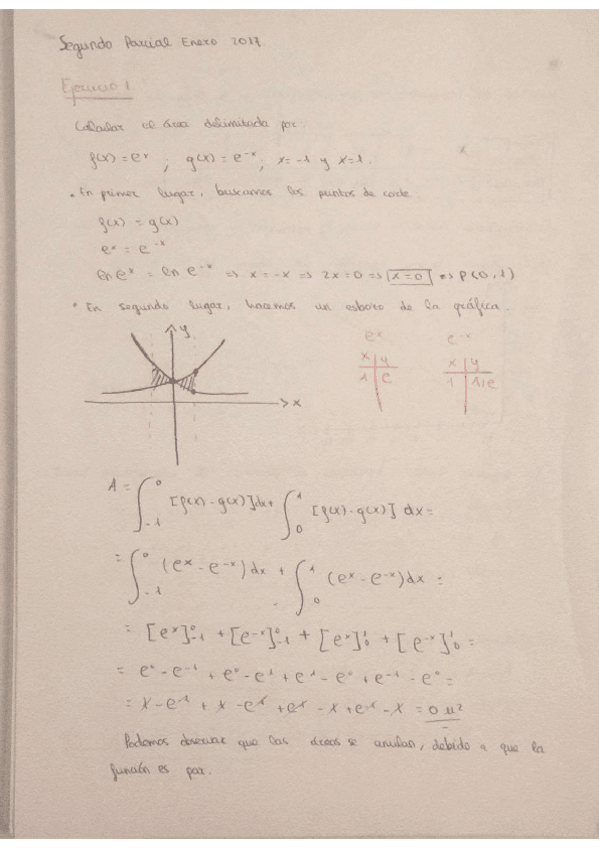 Segundo Parcial Enero 2017
Ejercicio 1
Calcular el área delimitada por:
f(x) = e^x ; g(x) = e^-x ; x = -1 y x = 1.
• En primer lugar, buscamos los puntos de corte.
f(x) = g(x)
e^x = e^-x
ln e^x = ln e^-x => x = -x => 2x = 0 => x = 0 => P(0, 1)
• En segundo lugar, hacemos un esbozo de la gráfica.
y
x
e^x
x | y
1 | e
e^-x
x | y
1 | 1/e
A = ∫_-1^0 [f(x) - g(x)] dx + ∫_0^1 [f(x) - g(x)] dx =
= ∫_-1^0 (e^x - e^-x) dx + ∫_0^1 (e^x - e^-x) dx =
= [e^x]_-1^0 + [e^-x]_-1^0 + [e^x]_0^1 + [e^-x]_0^1 =
= e^0 - e^-1 + e^0 - e^1 + e^1 - e^0 + e^-1 - e^0 =
= 1 - e^-1 + 1 - e^1 + e^1 - 1 + e^-1 - 1 = 0 u²
Podemos observar que las áreas se anulan, debido a que la
función es par.